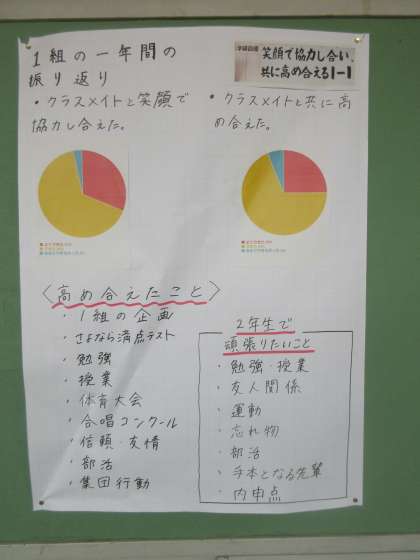 1組の一年間の
振り返り
学級目標
笑顔で協力し合い、
共に高め合える1-1
・クラスメイトと笑顔で
協力し合えた。
・クラスメイトと共に高
め合えた。
〈高め合えたこと〉
・1組の企画
・さよなら満点テスト
・勉強
・授業
・体育大会
・合唱コンクール
・信頼・友情
・部活
・集団行動
2年生で
頑張りたいこと
・勉強・授業
・友人関係
・運動
・忘れ物
・部活
・手本となる先輩
・内申点